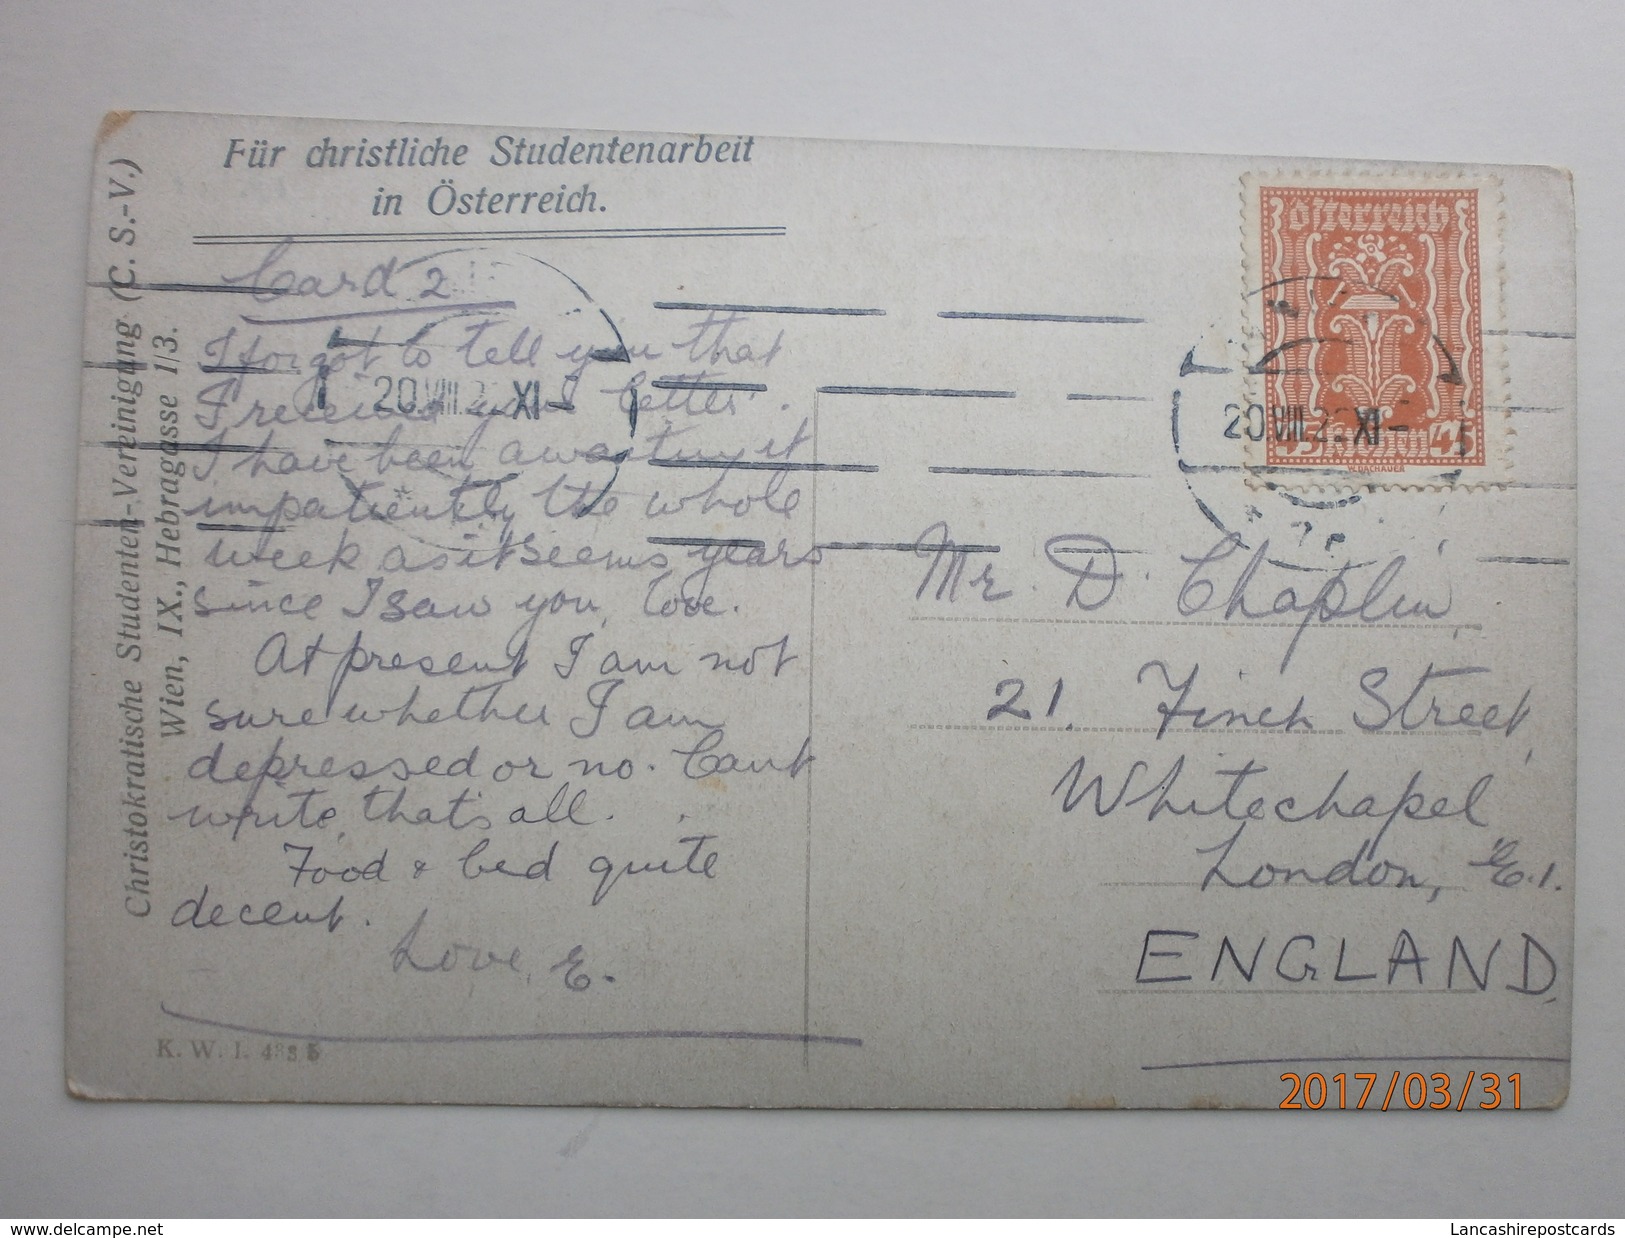 Für christliche Studentenarbeit
in Österreich.
Christokratische Studenten-Vereinigung (C. S.-V.)
Wien, IX., Hebragasse 1/3.
Card 2
I forgot to tell you that
I received your letter.
I have been awaiting it
impatiently the whole
week as it seems years
since I saw you, love.
At present I am not
sure whether I am
depressed or no. Cant
write, that's all.
Food & bed quite
decent.
Love, E.
K. W. I.
Österreich
45 Kronen 45
W. DACHAUER
20.VIII.2 XI-
20.VIII.22 XI-
Mr. D. Chaplin,
21. Finch Street,
Whitechapel
London, E.1.
ENGLAND.
2017/03/31
www.delcampe.net
Lancashirepostcards